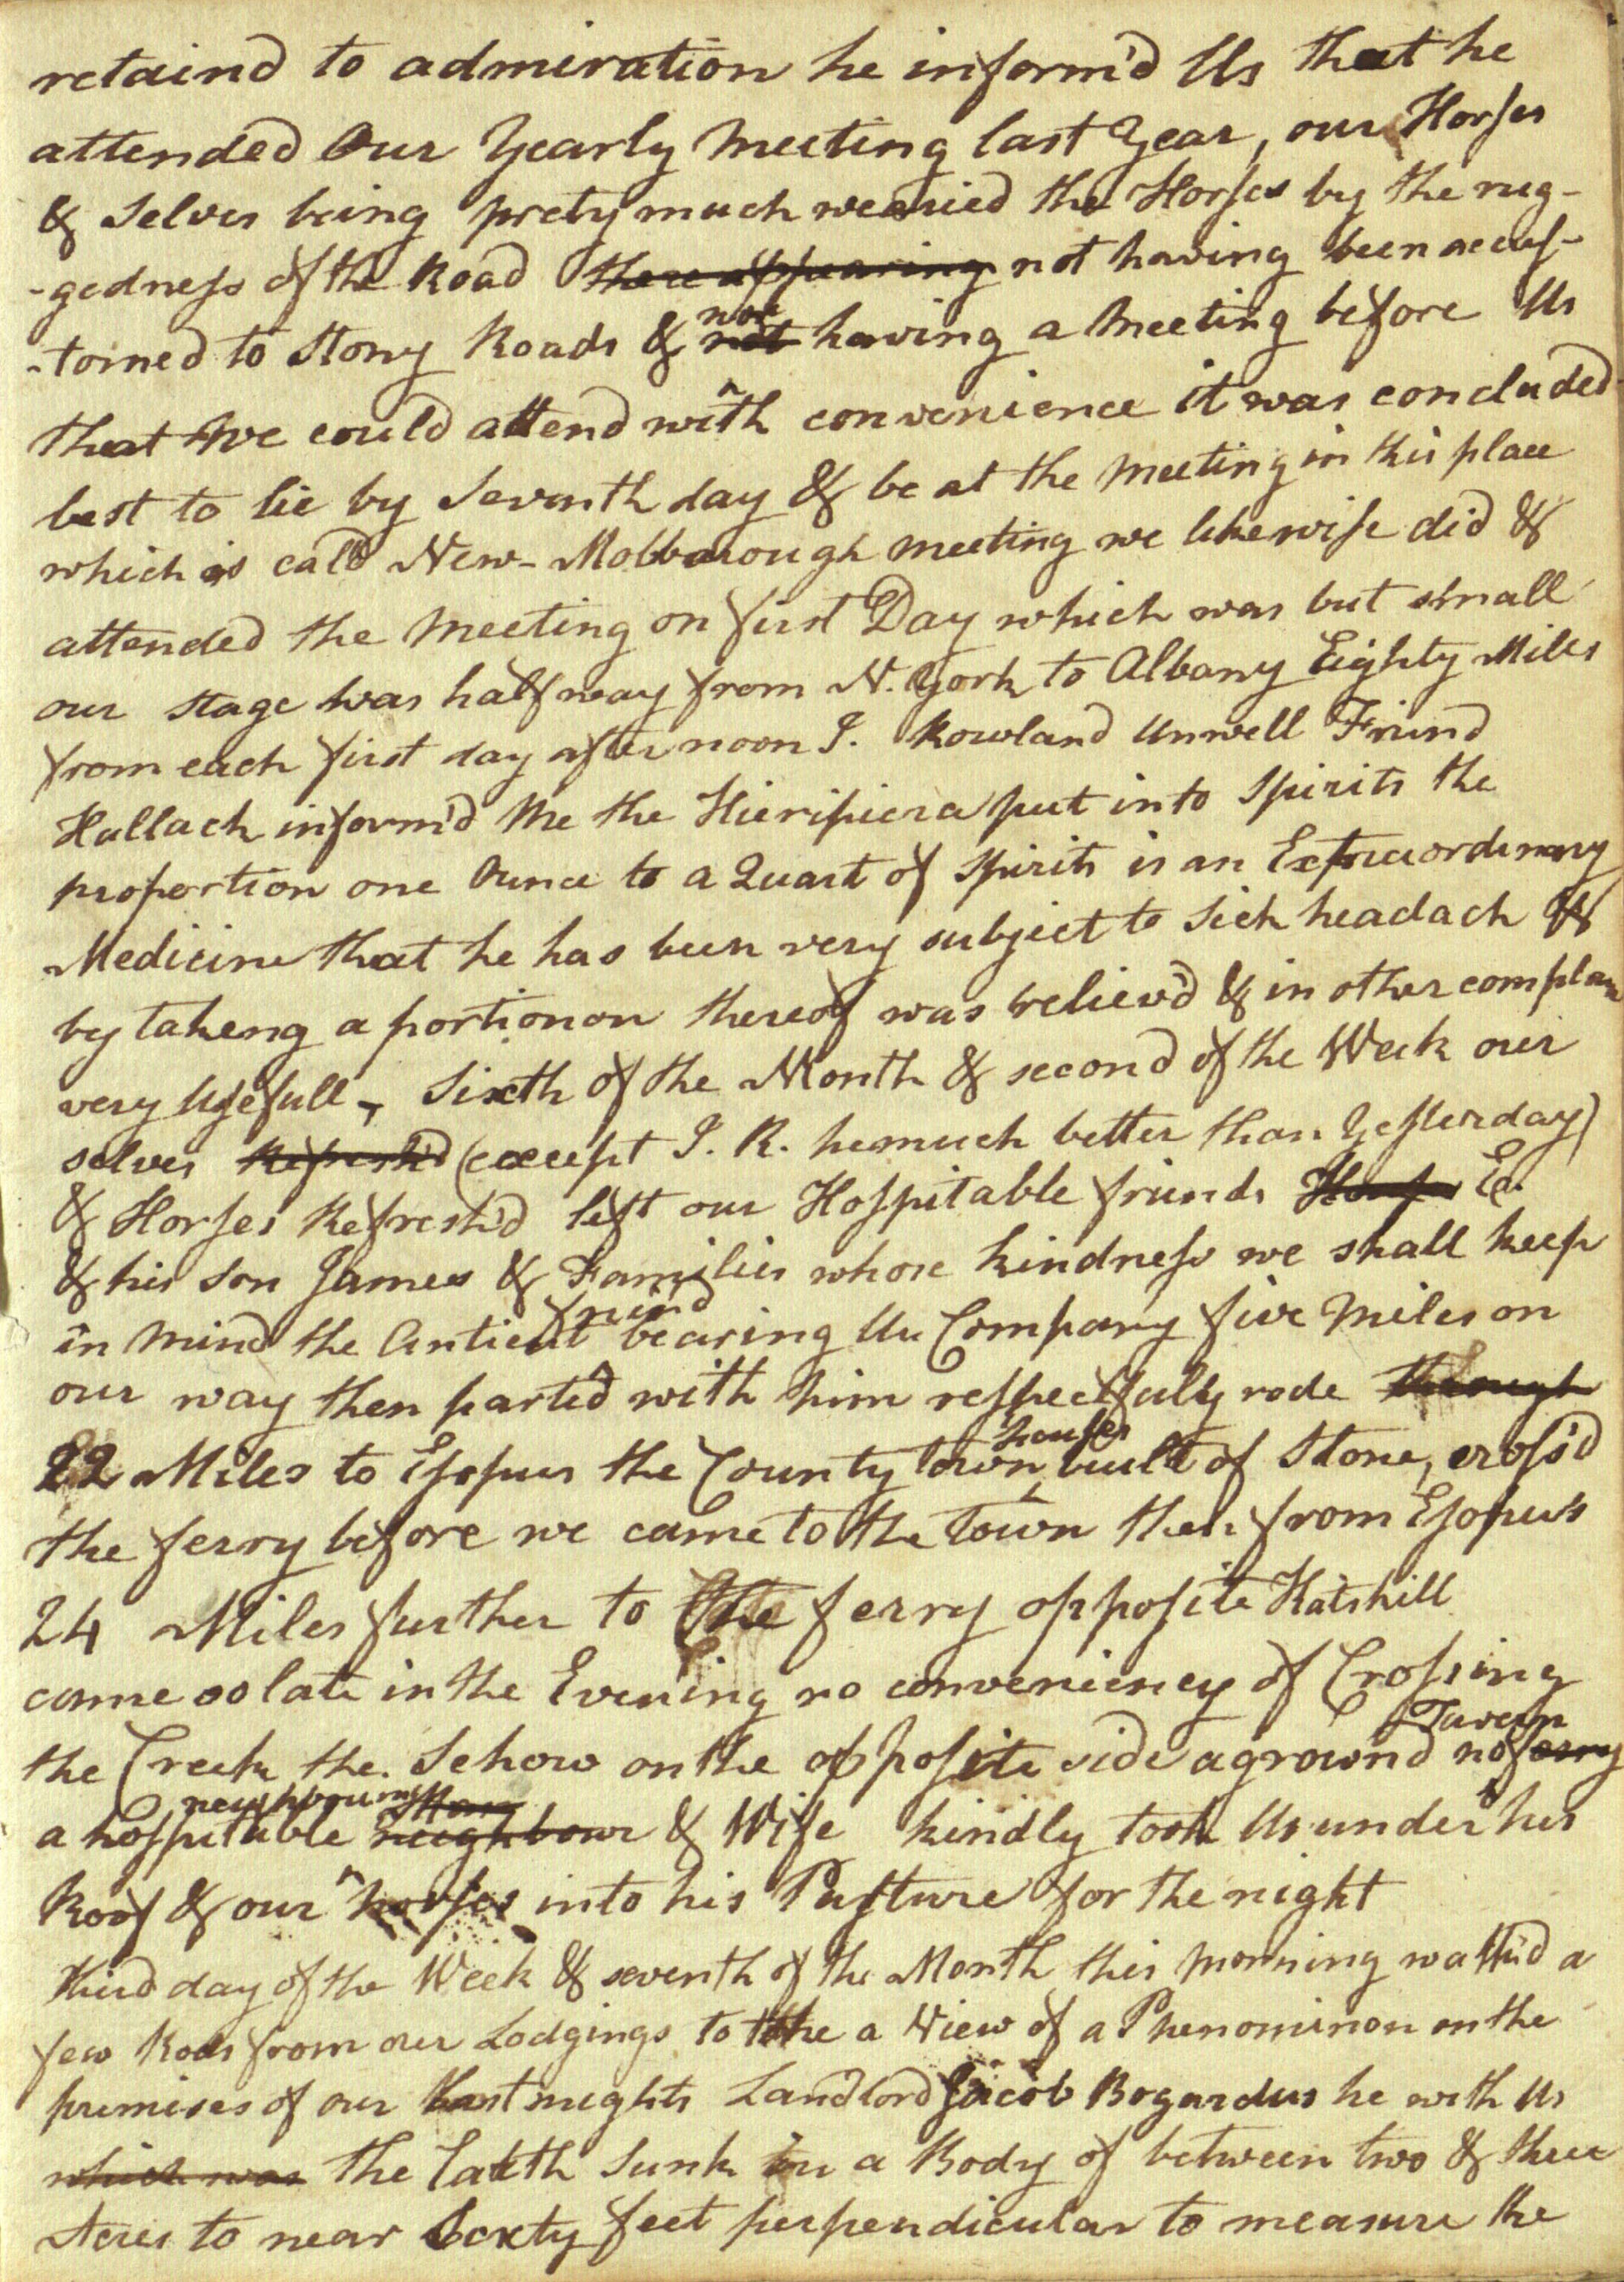 retaind to admiration he inform'd Us that he
attended Our Yearly Meeting last Year, our Horses
& Selves being prety much wearied the Horses by the rug-
-gedness of the Road there appearing not having been accus-
-tomed to Stony Roads & not nor having a Meeting before Us
that we could attend with convenience it was concluded
best to lie by Seventh day & be at the Meeting in this place
which is calld New-Molbarough meeting we likewise did &
attended the Meeting on first Day which was but small
our stage was half way from N. York to Albany Eighty Miles
from each first day after noon I. Rowland Unwell Friend
Hallack inform'd Me the Hieripicra put into Spirits the
proportion one Ounce to a Quart of Spirits is an Extraordinary
Medicine that he has been very subject to Sick headach &
by takeng a portionon thereof was reliev'd & in other complain
very Usefull, Sixth of the Month & second of the Week our
selves Refresh'd (except I. R. hemuch better than Yesterday)
& Horses Refresh'd left our Hospitable friends Ed.
& his Son James & Families whose kindness we shall keep
in Mind the Antient friend bearing Us Company five Miles on
our way then parted with him respectfully rode through
22 Miles to Esopus the County town houses built of Stone, cross'd
the ferry before we came to the Town then from Esopus
24 Miles further to the ferry opposite Katskill
came so late in the Evening no conveniency of Crossing
the Creek the Schow on the opposite side aground no ferry Tavern
a hospitable neighbour neighbouring Man & Wife kindly took Us under his
Roof & our horses into his Pasture for the night
third day of the Week & seventh of the Month this Morning walk'd a
few Rods from our Lodgings to take a View of a Phenominon on the
premises of our last nights Landlord Jacob Bogardus he with Us
which was the Earth Sunk in a Body of between two & three
Acres to near Sixty feet perpendicular to measure the